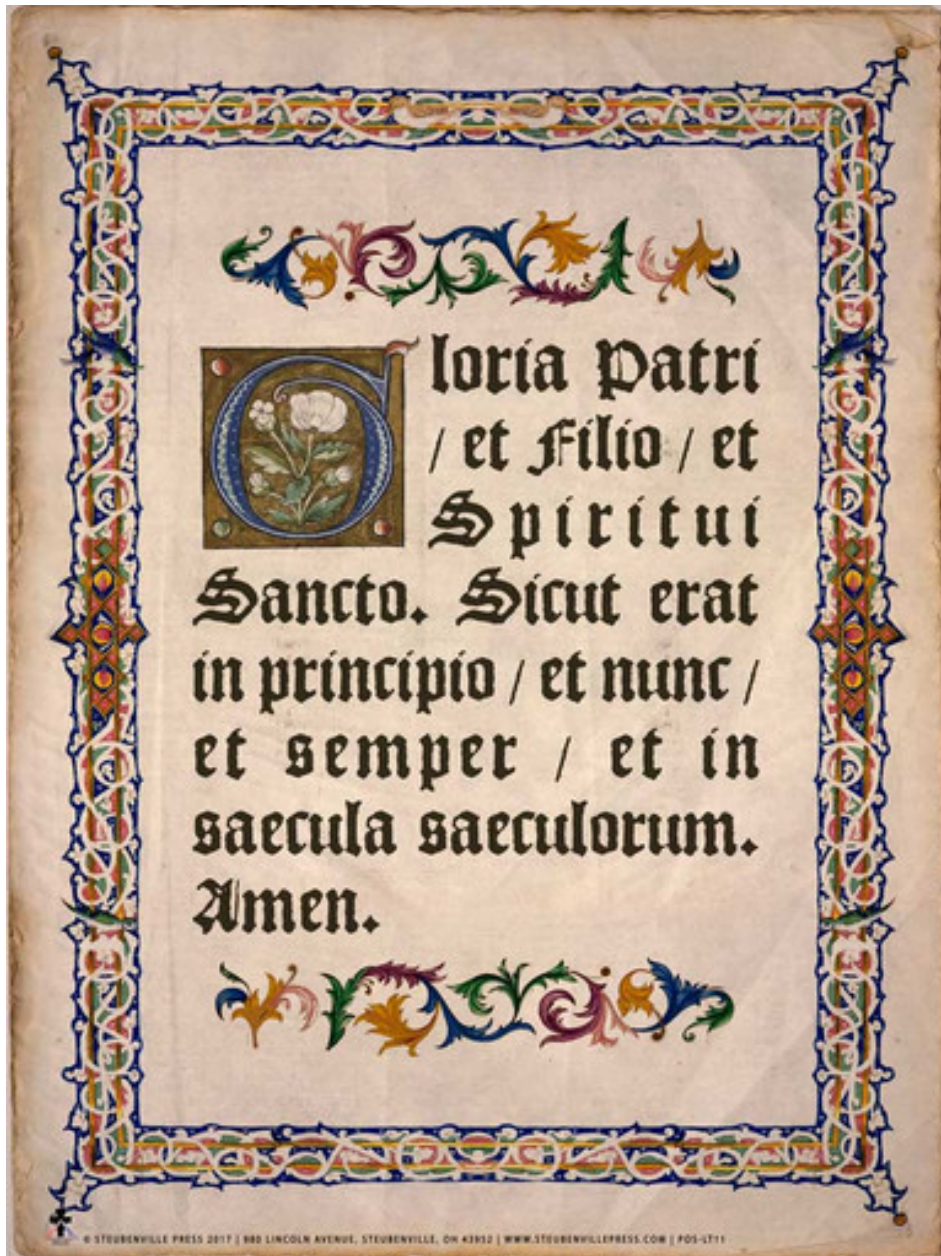 Gloria Patri
/ et Filio / et
Spiritui
Sancto. Sicut erat
in principio / et nunc /
et semper / et in
saecula saeculorum.
Amen.
© STEUBENVILLE PRESS 2017 | 880 LINCOLN AVENUE, STEUBENVILLE, OH 43952 | WWW.STEUBENVILLEPRESS.COM | POS-LT11